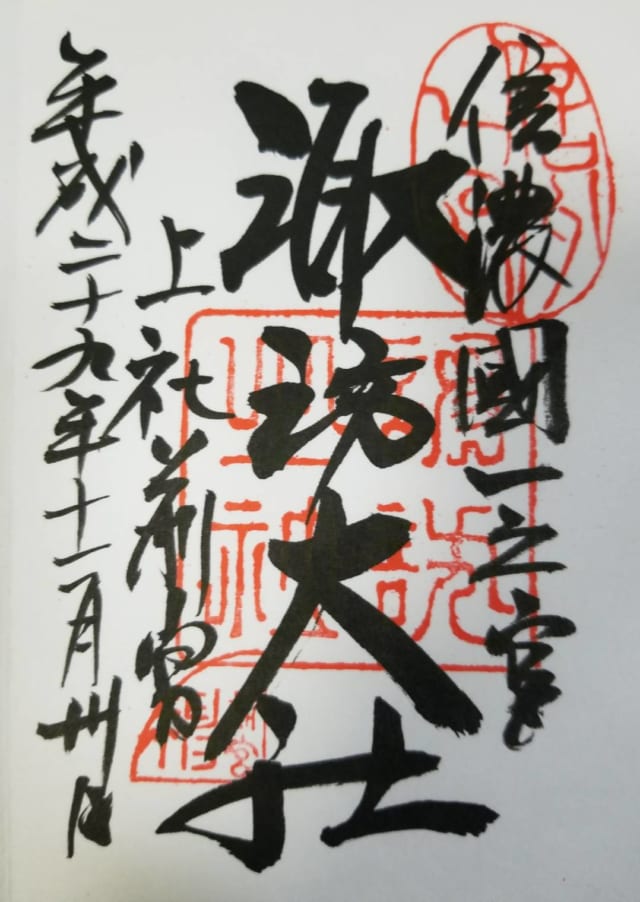 信濃國一之宮
諏訪大社
上社前宮
平成二十九年十一月卅日